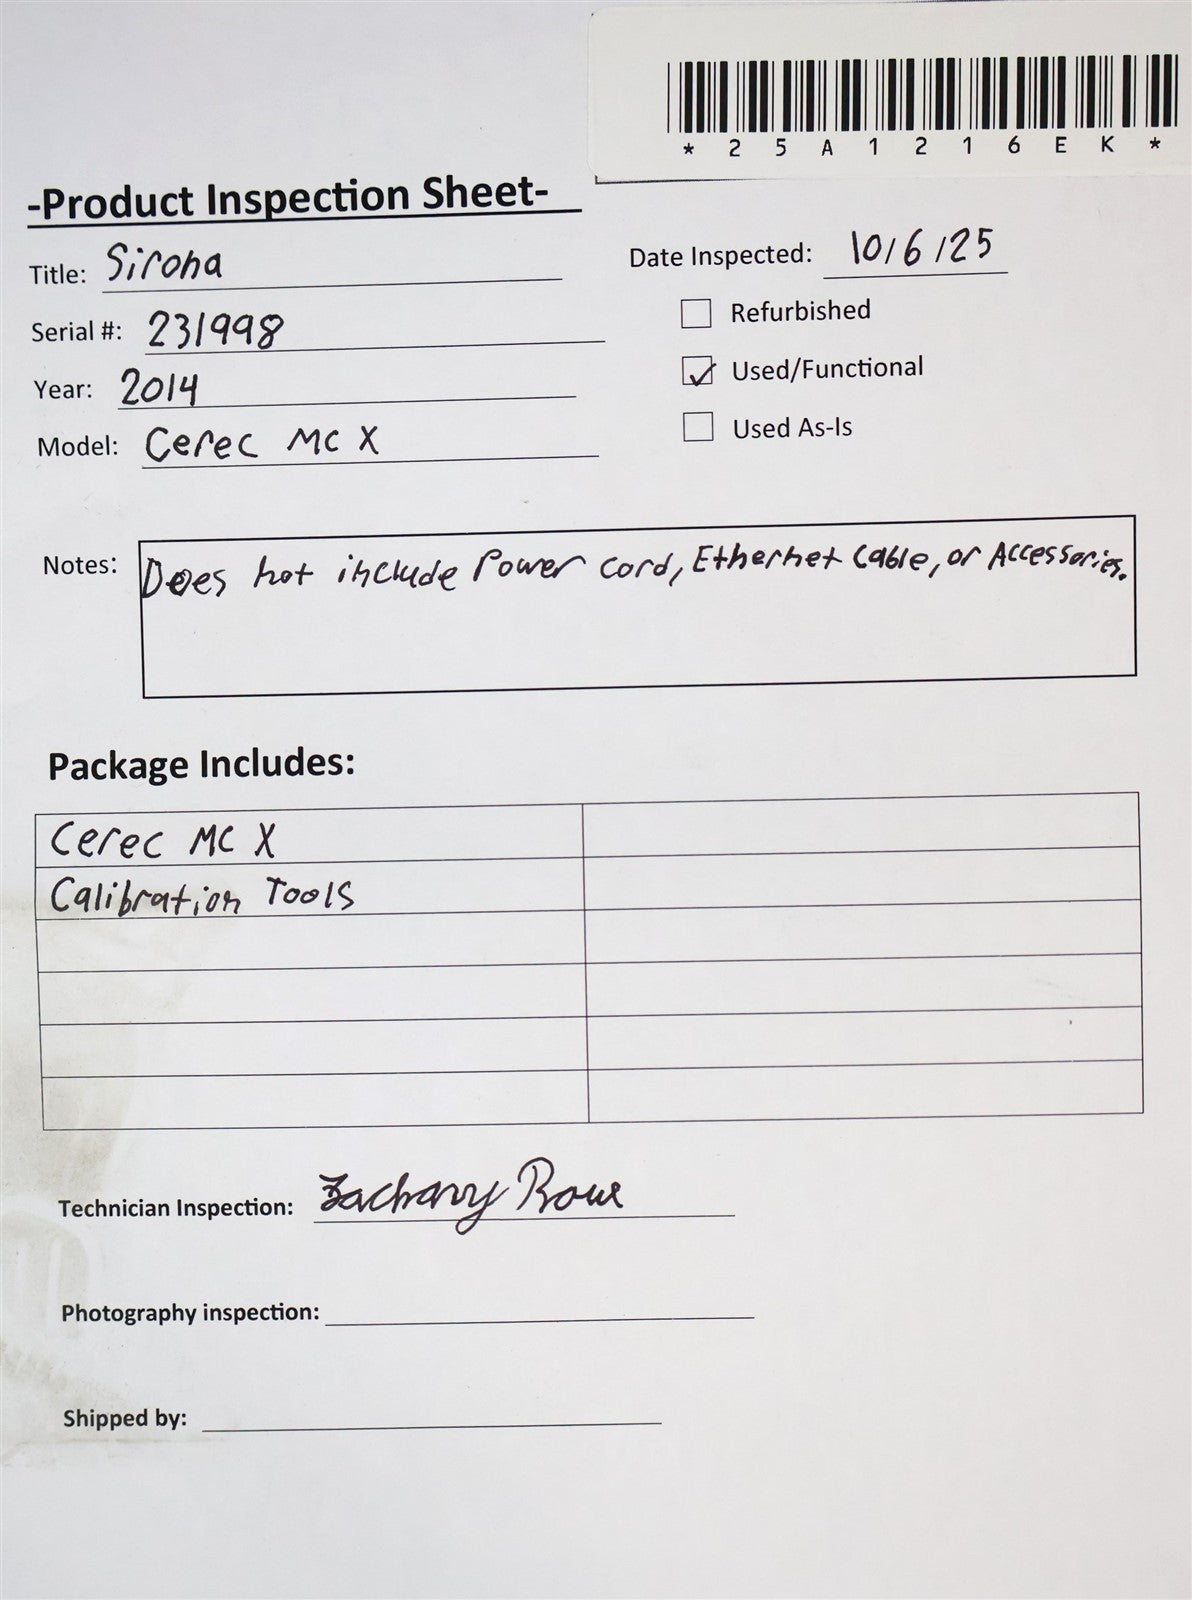 *25A1216EK*
-Product Inspection Sheet-
Title: Sirona
Date Inspected: 10/6/25
Serial #: 231998
Refurbished
Year: 2014
Used/Functional
Model: Cerec MC X
Used As-Is
Notes: Does not include Power cord, Ethernet Cable, or Accessories.
Package Includes:
Cerec MC X
Calibration Tools
Technician Inspection: Zachary Rowe
Photography inspection:
Shipped by: